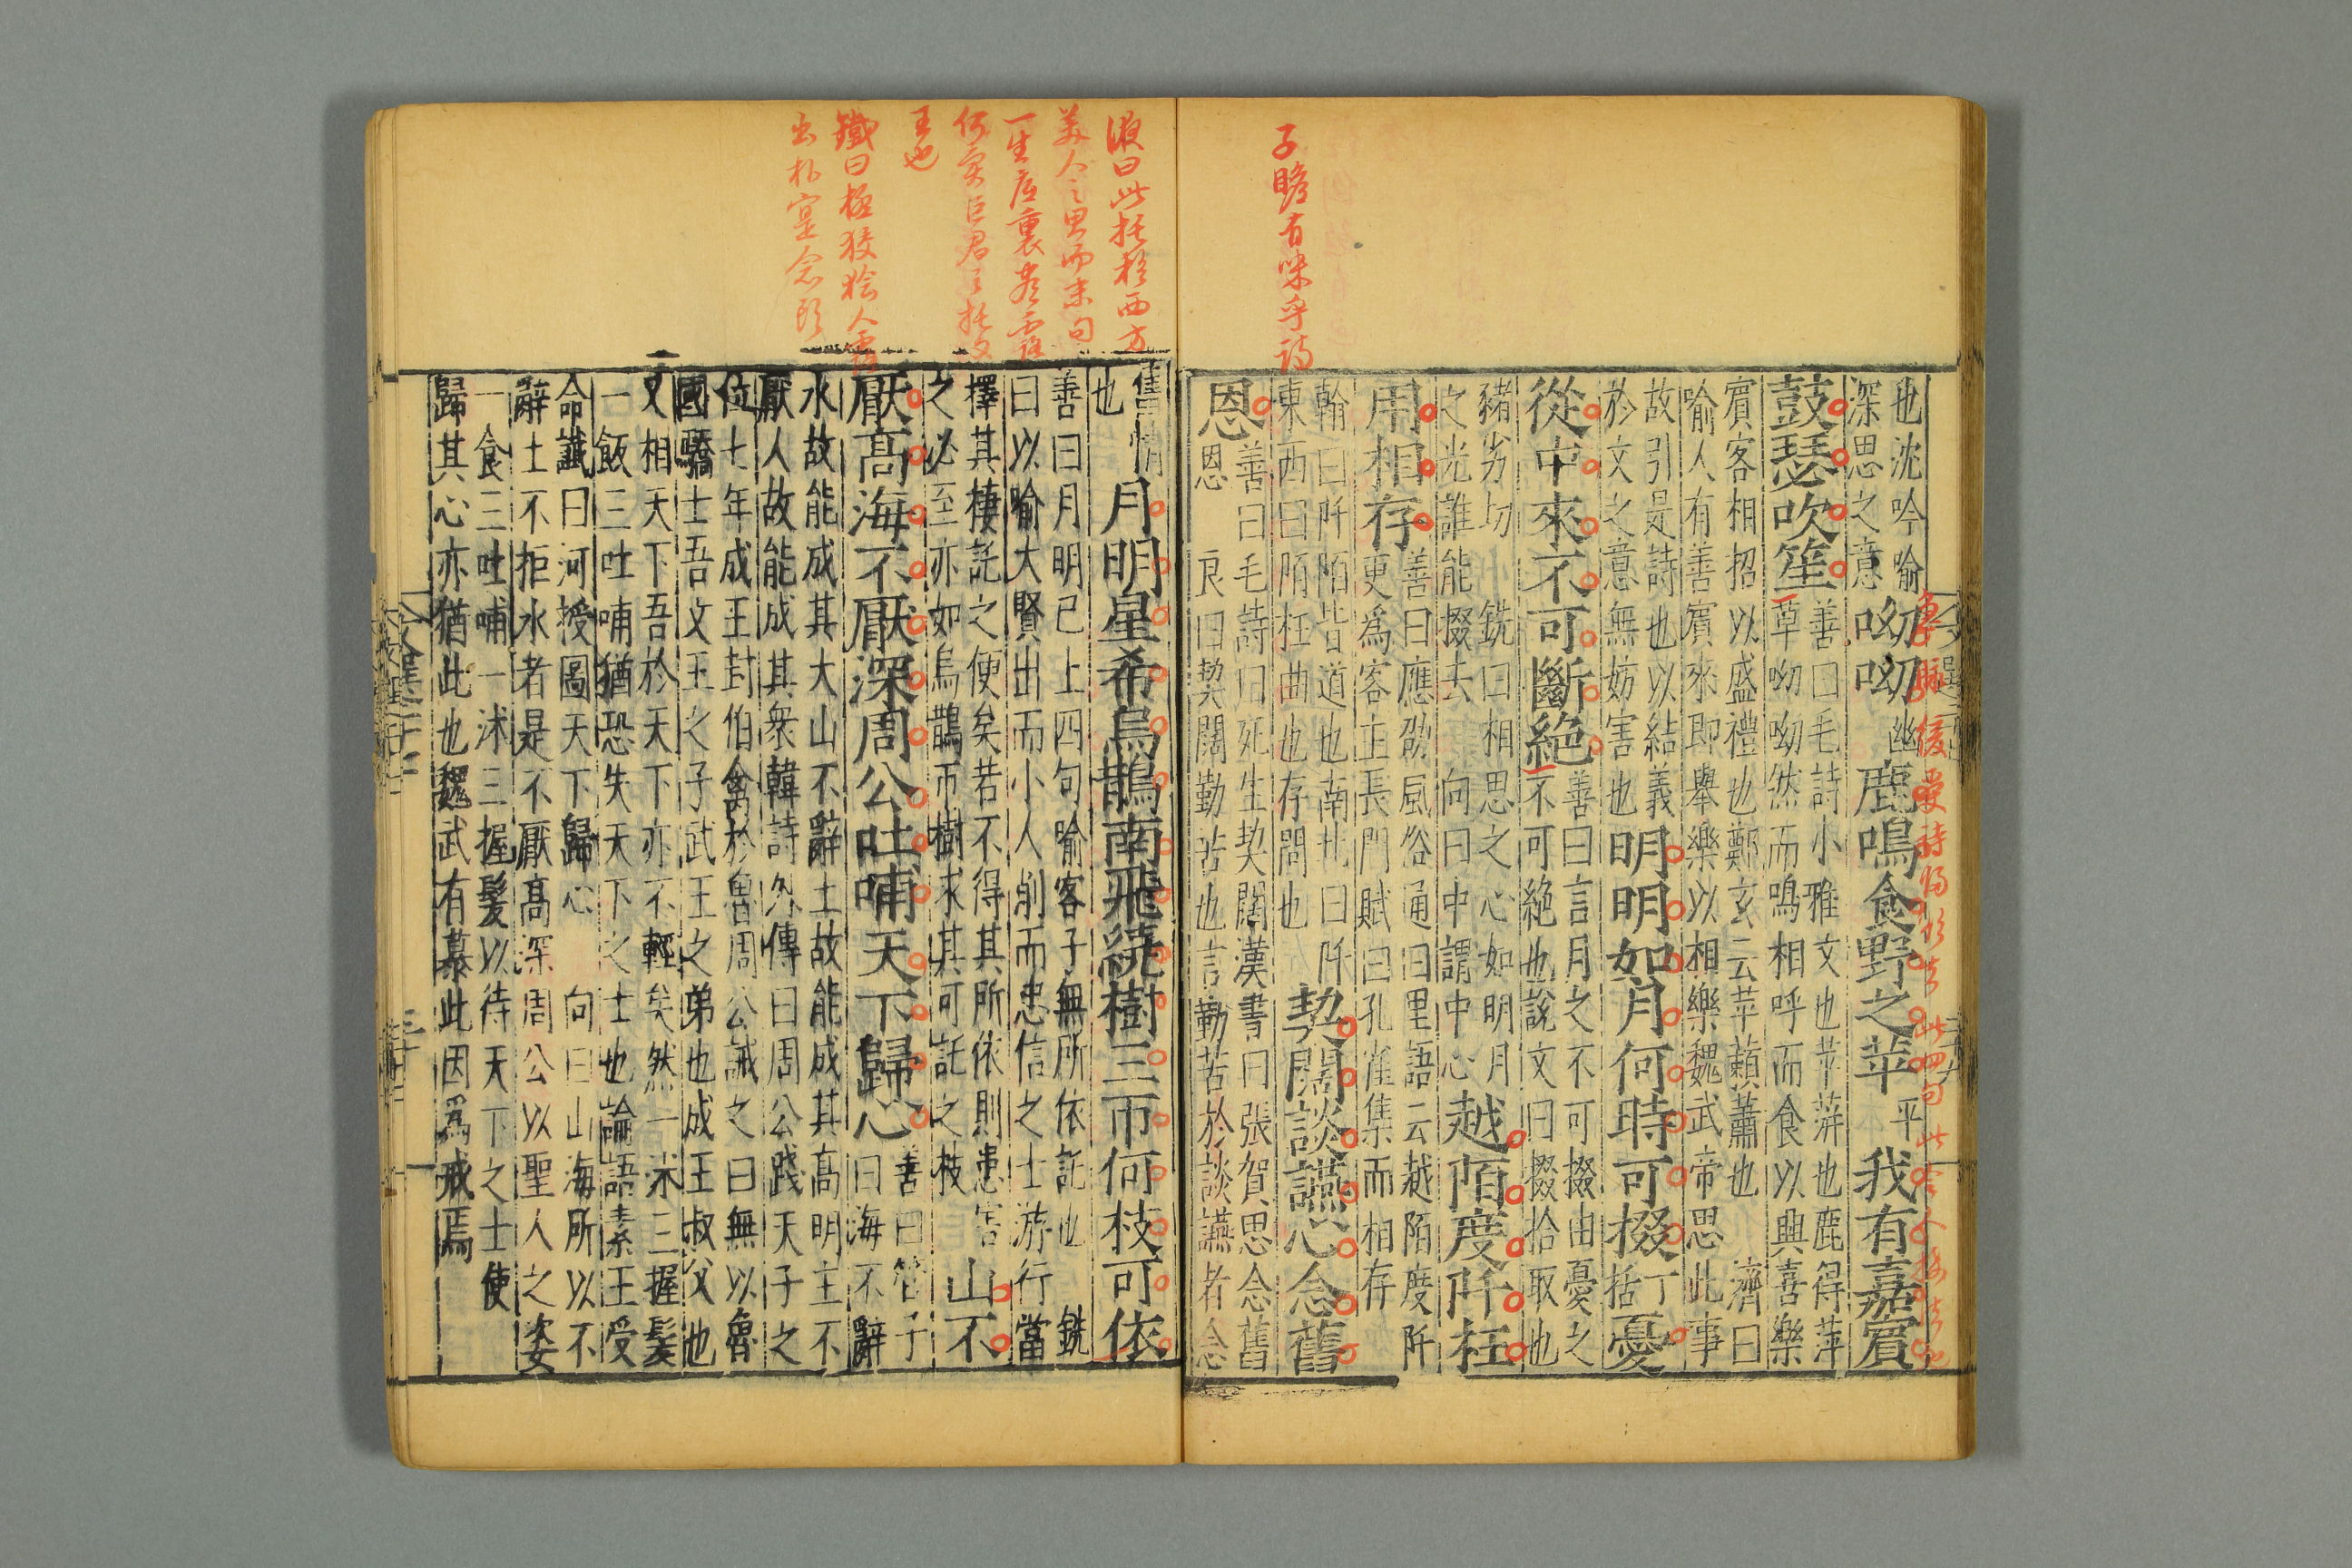 子瞻有味乎詩
也沈吟喻
深思之意
呦呦幽鹿鳴食野之苹平我有嘉賓
鼓瑟吹笙
善曰毛詩小雅文也苹蓱也鹿得萍
草呦呦然而鳴相呼而食以興喜樂
賓客相招以盛禮也鄭玄云苹藾蕭也 濟曰
喻人有善賓來即舉樂以相樂魏武帝思此事
故引是詩也以結義
於文之意無妨害也
明明如月何時可掇丁括憂
從中來不可斷絕
善曰言月之不可掇由憂之
不可絕也說文曰掇拾取也
豬劣切 銑曰相思之心如明月
之光誰能掇去 向曰中謂中心
越陌度阡枉
用相存
善曰應劭風俗通曰里語云越陌度阡
更為客主長門賦曰孔雀集而相存
翰曰阡陌皆道也南北曰阡
東西曰陌枉曲也存問也
契闊談讌心念舊
恩
善曰毛詩曰死生契闊漢書曰張賀思念舊
恩 良曰契闊勤苦也言勤苦於談讌者念
舊情
也
月明星希烏鵲南飛繞樹三帀何枝可依
善曰月明已上四句喻客子無所依託也 銑
曰以喻大賢出而小人削而忠信之士游行當
擇其棲託之便矣若不得其所依則患害
之必至亦如烏鵲帀樹求其可託之枝
山不
厭高海不厭深周公吐哺天下歸心
善曰管子
曰海不辭
水故能成其大山不辭土故能成其高明主不
厭人故能成其衆韓詩外傳曰周公踐天子之
位七年成王封伯禽於魯周公誡之曰無以魯
國驕士吾文王之子武王之弟也成王叔父也
又相天下吾於天下亦不輕矣然一沐三握髮
一飯三吐哺猶恐失天下之士也論語素王受
命讖曰河授圖天下歸心 向曰山海所以不
辭土不拒水者是不厭高深周公以聖人之姿
一食三吐哺一沐三握髮以待天下之士使
歸其心亦猶此也魏武有慕此因爲戒焉
美人之思而末句
王也
鐵曰極狡獪人露